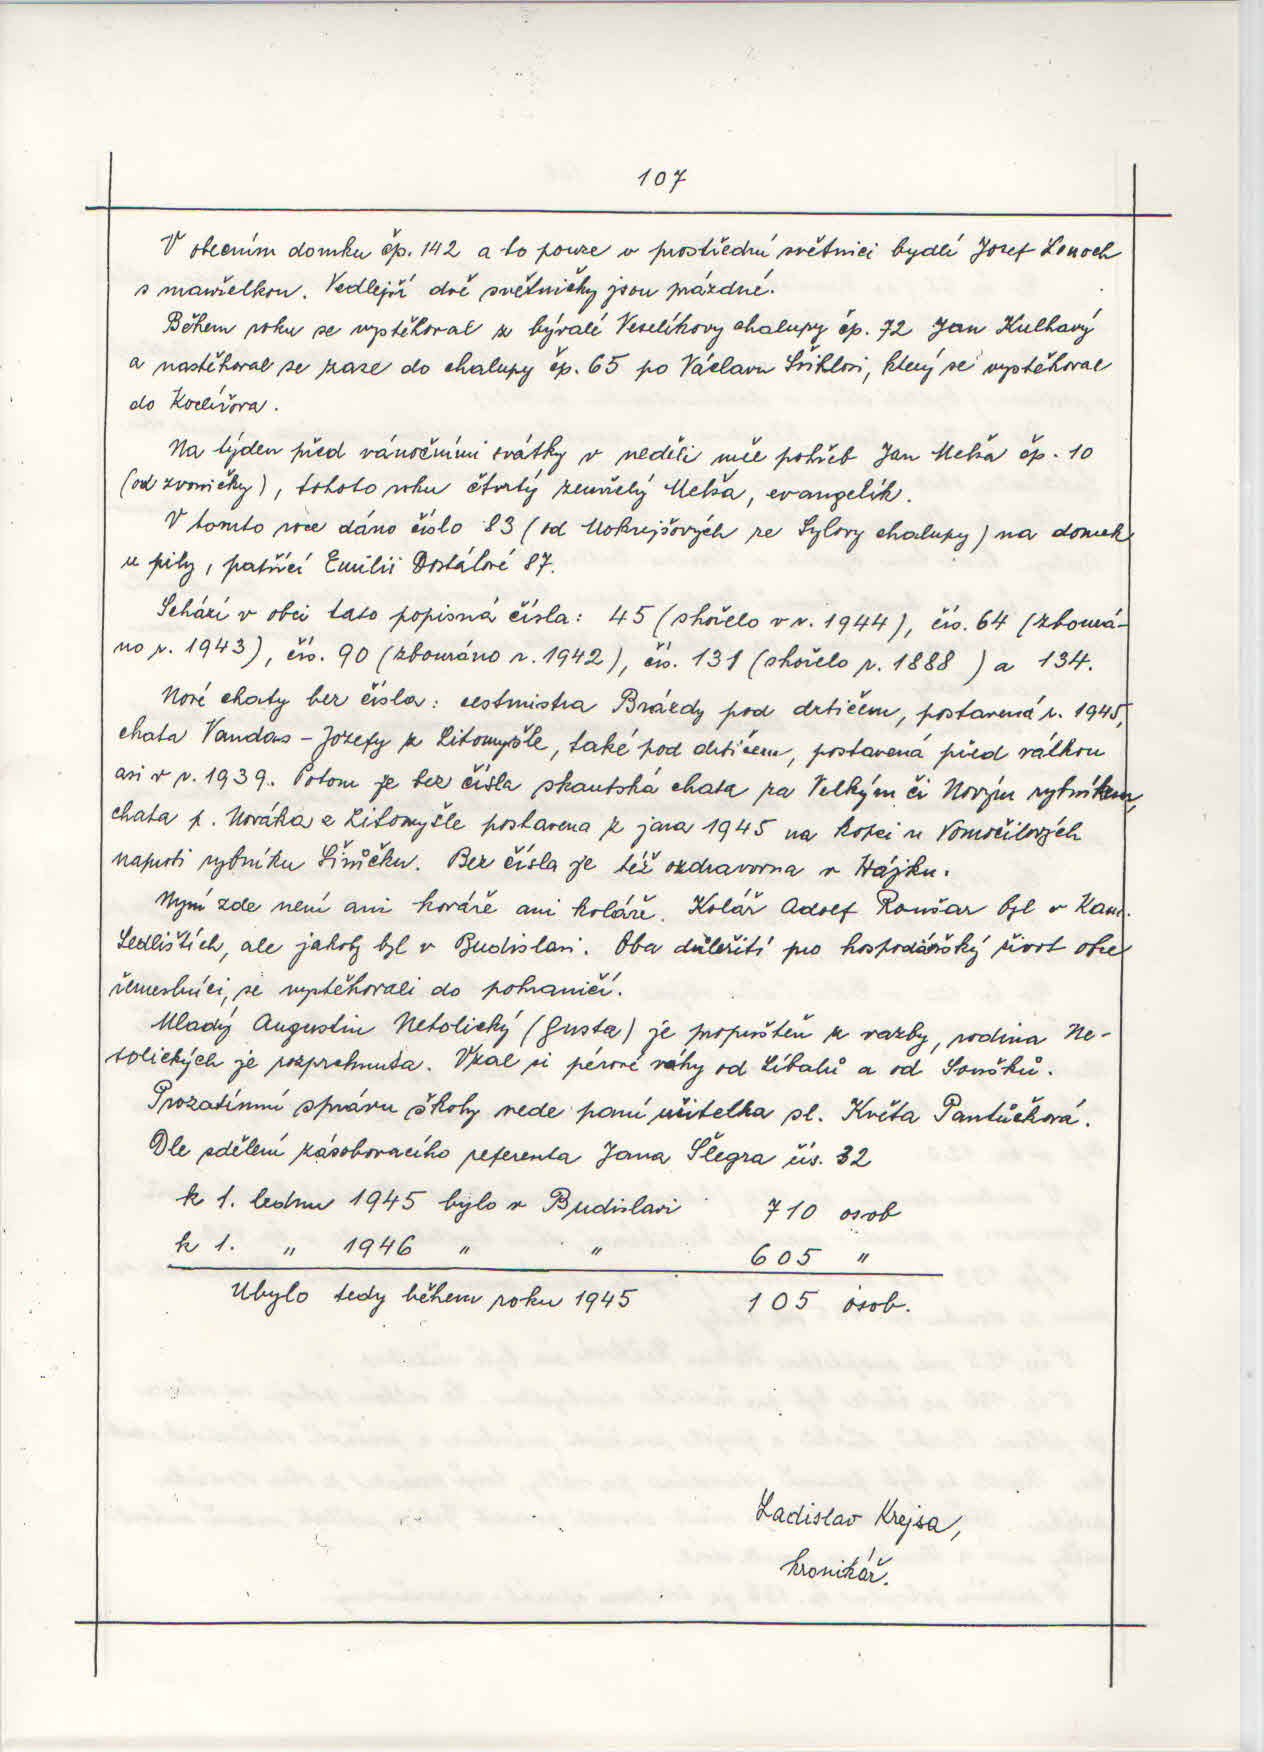 107
V obecním domku čp. 142 a to pouze v prostřední světnici bydlí Josef Lenoch
s manželkou. Vedlejší dvě světničky jsou prázdné.
Během roku se vystěhoval z bývalé Veselíkovy chalupy čp. 72 Jan Kulhavý
a nastěhoval se zase do chalupy čp. 65 po Václavu který se vystěhoval
do
Na týden před vánočními svátky v neděli měl pohřeb Jan Melša čp. 10
(od zvoničky), tohoto roku čtvrtý zemřelý Melša, evangelík.
V tomto roce dáno číslo 83 (od Mokrejšových ze Sylovy chalupy) na domek
u pily, patřící Emilii Dostálové 87.
Schází v obci tato popisná čísla: 45 (shořelo v r. 1944), čís. 64 (zbourá-
no r. 1943), čís. 90 (zbouráno r. 1942), čís. 131 (shořelo r. 1888) a 134.
Nové chaty bez čísla: cestmistra Brázdy pod drtičem, postavená r. 1945,
chata Vandas - Josefy z Litomyšle, také pod drtičem, postavená před válkou
asi v r. 1939. Potom je bez čísla skautská chata za Velkým či Novým rybníkem,
chata p. Nováka z Litomyšle postavena z jara 1945 na kopci u Vomočilových
naproti rybníku Bez čísla je též ozdravovna v Hájku.
Nyní zde není ani kováře ani koláře. Kolář Adolf Roušar byl v Kam.
Sedlištích, ale jakoby byl v Budislavi. Oba důležití pro hospodářský život obce
řemeslníci, se vystěhovali do pohraničí.
Mladý Augustin Netolický (Gusta) je propuštěn z vazby, rodina Ne-
tolických je rozprchnuta. Vzal si pérové váhy od Líbalů a od
Prozatímní správu školy vede paní učitelka sl. Květa Pantůčková.
Dle sdělení zásobovacího referenta Jana Šlegra čís. 32
k 1. lednu 1945 bylo v Budislavi 710 osob
k 1. " 1946 " " 605 "
Ubylo tedy během roku 1945 105 osob.
Ladislav Krejsa,
kronikář.